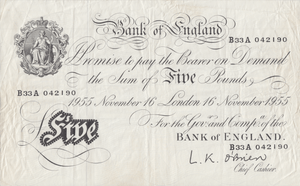 Bank of England
B33A 042190
Promise to pay the Bearer on Demand
the Sum of Five Pounds
B33A 042190
1955 November 16 London 16 November 1955
For the Govr. and Compa. of the
BANK OF ENGLAND.
Five
B33A 042190
L. K. O'Brien
Chief Cashier